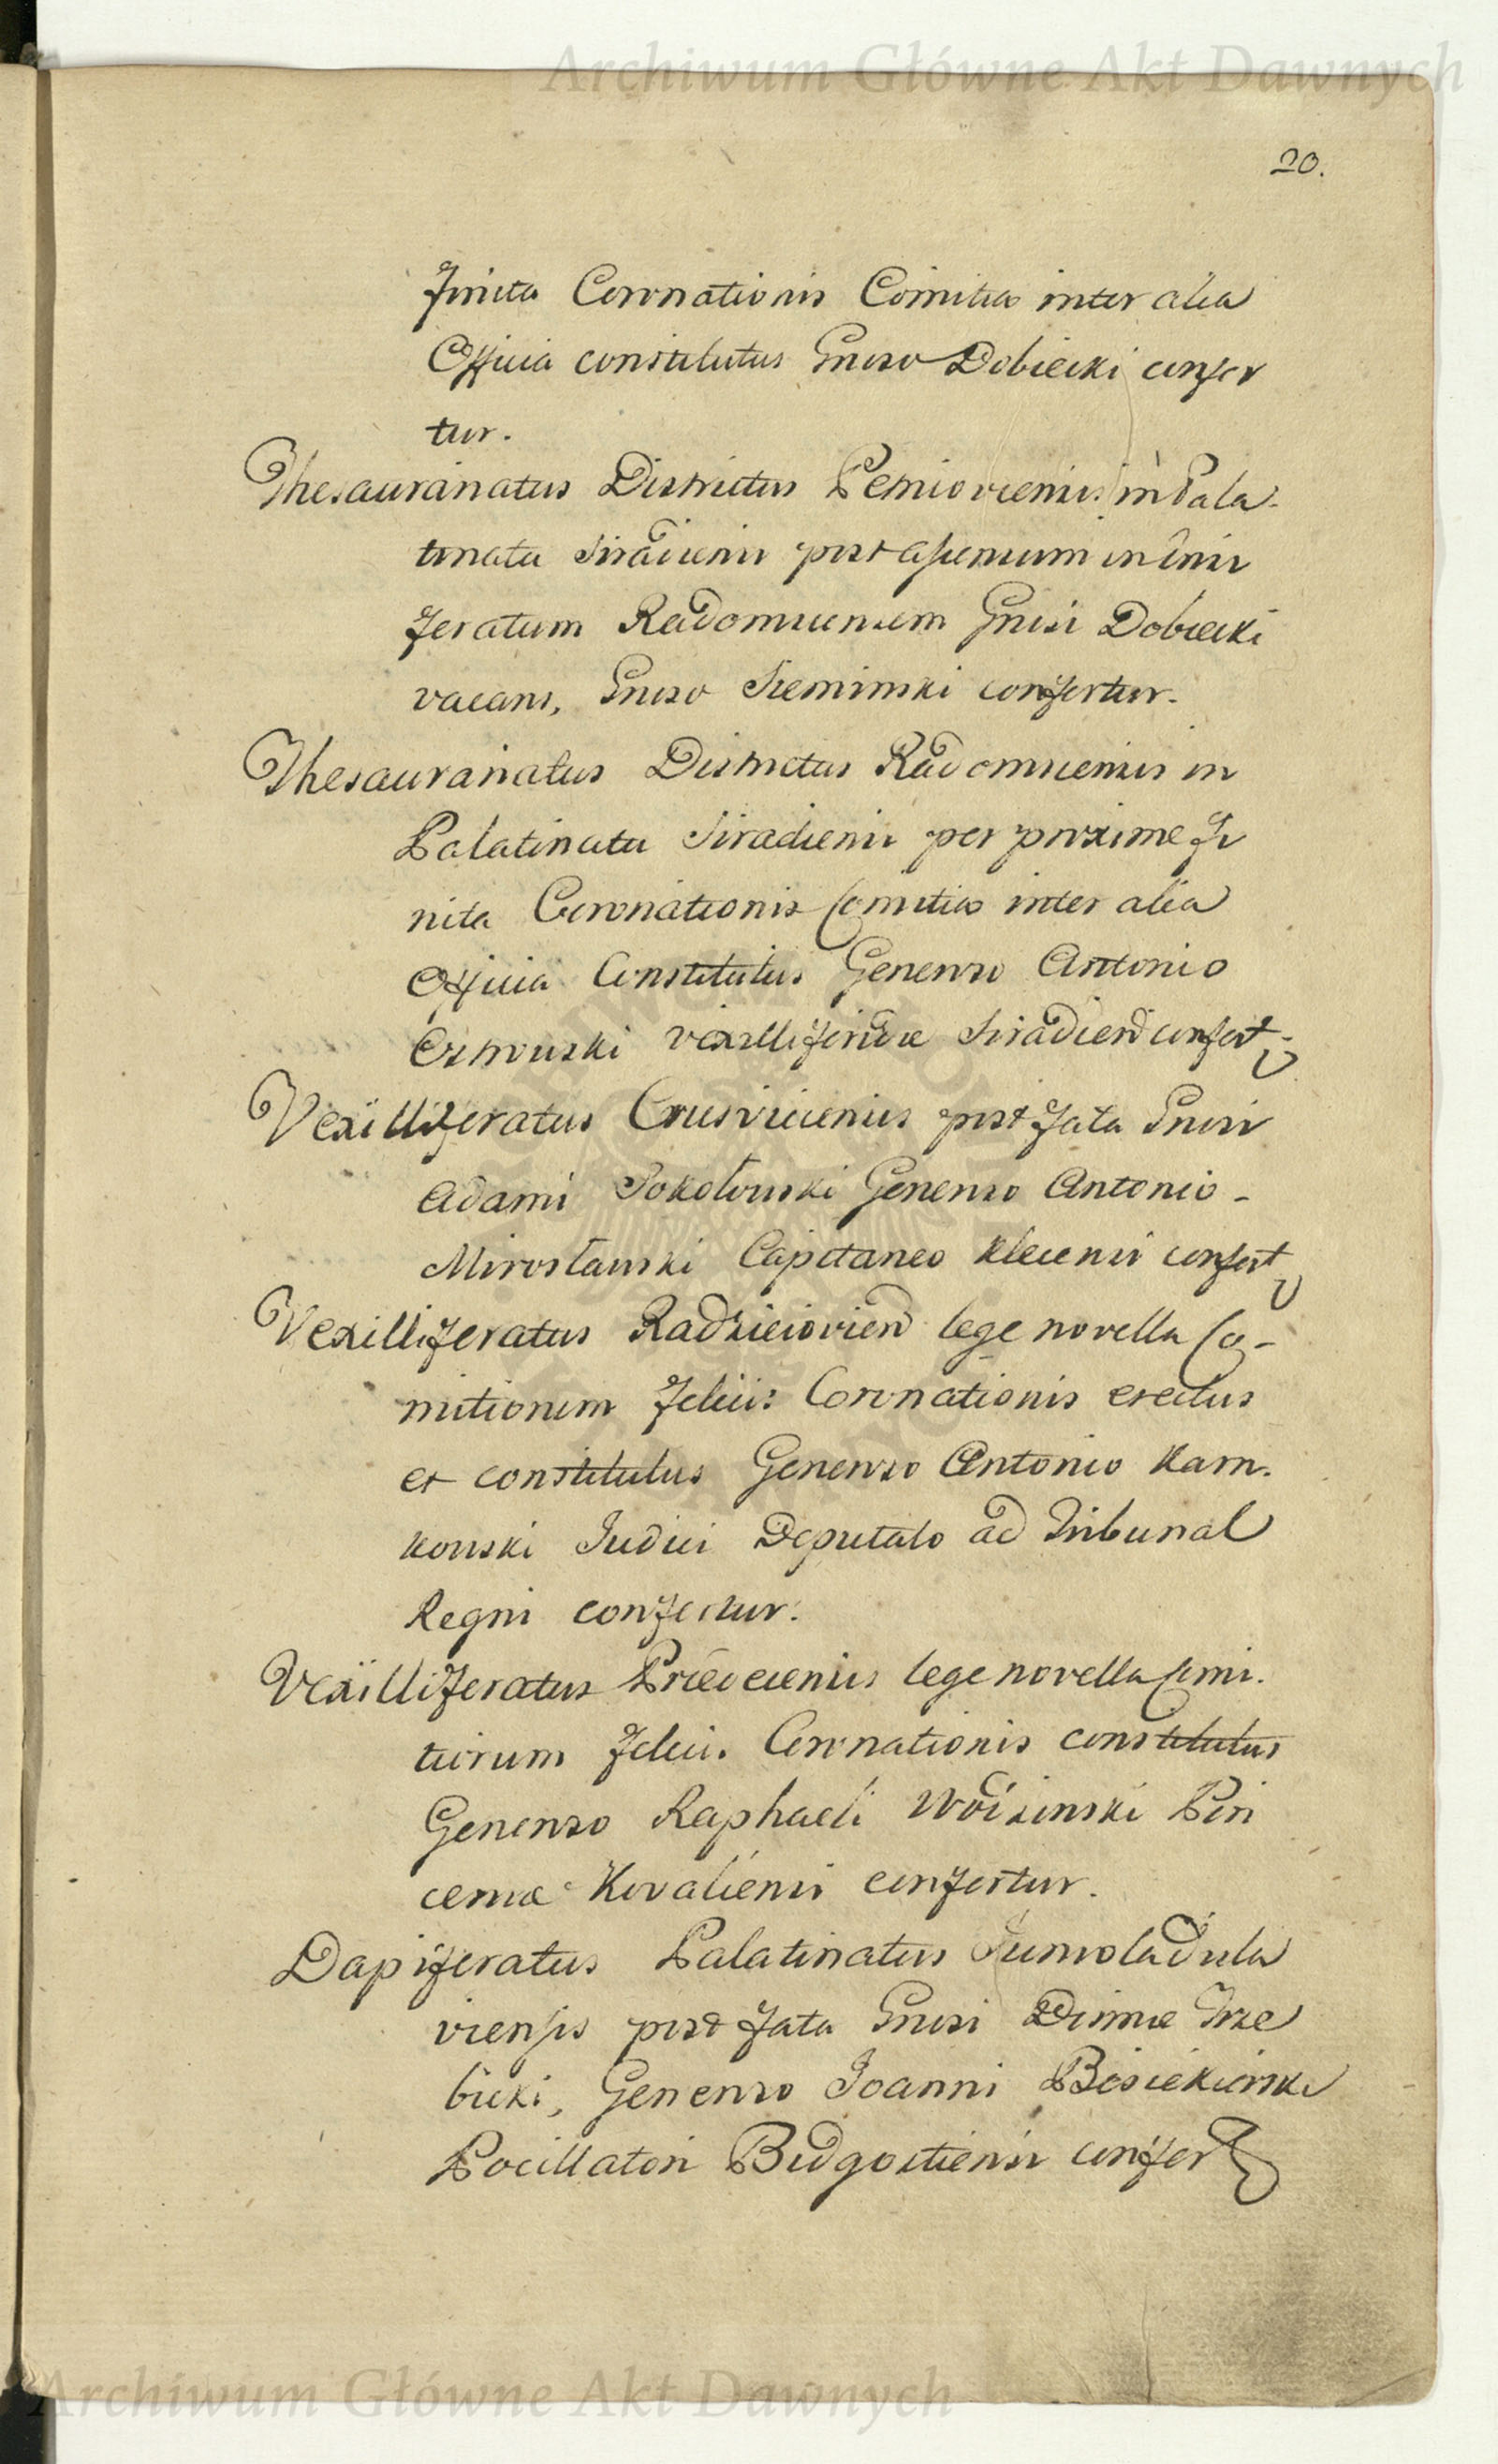 Archiwum Główne Akt Dawnych
20.
finita Coronationis Comitia inter alia
Officia constitutus Gnoso Dobiecki confer
tur.
Thesaurariatus Districtus Petricoviensis in Pala-
tinatu Siradiensi post ascensum in Vexilli
feratum Radomscensem Gnosi Dobiecki
vacans, Gnoso Sieminski confertur.
Thesaurariatus Districtus Radomscensis in
Palatinatu Siradiensi per proxime fi
nita Coronationis Comitia inter alia
Officia Constitutus Generoso Antonio
Ostrowski vexilliferidae Siradien confert
Vexilliferatus Crusviciensis post fata Gnosi
Adami Sokołowski Generoso Antonio -
Mirosławski Capitaneo Klecensi confert
Vexilliferatus Radzieiovien lege novella Co-
mitiorum felicis Coronationis erectus
et constitutus Generoso Antonio Karn-
kowski Judici Deputato ad Tribunal
Regni confertur.
Vexilliferatus Przedecensis lege novella Comi-
tiorum felicis Coronationis constitutus
Generoso Raphaeli Pin
cernae Kovaliensi confertur.
Dapiferatus Palatinatus Junivladisla
viensis post fata Gnosi Trze
bicki, Generoso Joanni Biesiekierski
Pocillatori Bidgostiensi confert
Archiwum Główne Akt Dawnych